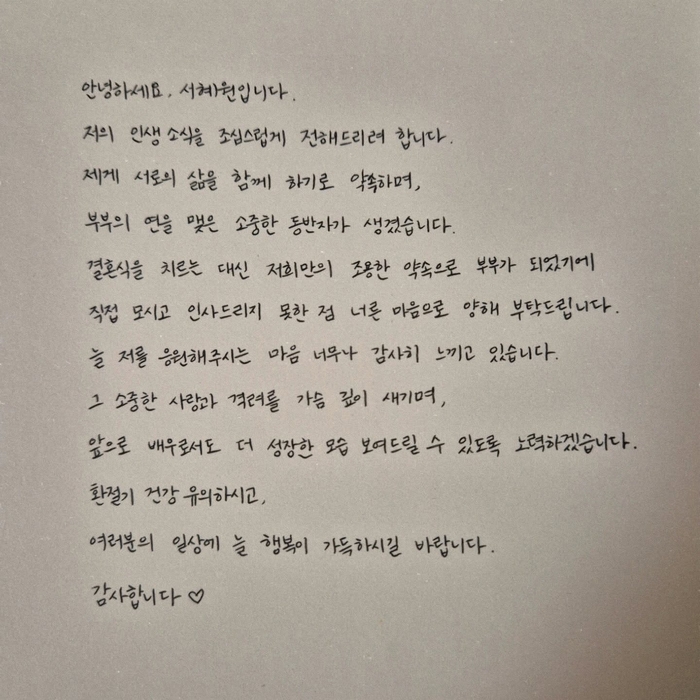 안녕하세요, 서혜원입니다.
저의 인생 소식을 조심스럽게 전해드리려 합니다.
제게 서로의 삶을 함께 하기로 약속하며,
부부의 연을 맺은 소중한 동반자가 생겼습니다.
결혼식을 치르는 대신 저희만의 조용한 약속으로 부부가 되었기에
직접 모시고 인사드리지 못한 점 너른 마음으로 양해 부탁드립니다.
늘 저를 응원해주시는 마음 너무나 감사히 느끼고 있습니다.
그 소중한 사랑과 격려를 가슴 깊이 새기며,
앞으로 배우로서도 더 성장한 모습 보여드릴 수 있도록 노력하겠습니다.
환절기 건강 유의하시고,
여러분의 일상에 늘 행복이 가득하시길 바랍니다.
감사합니다 ♡